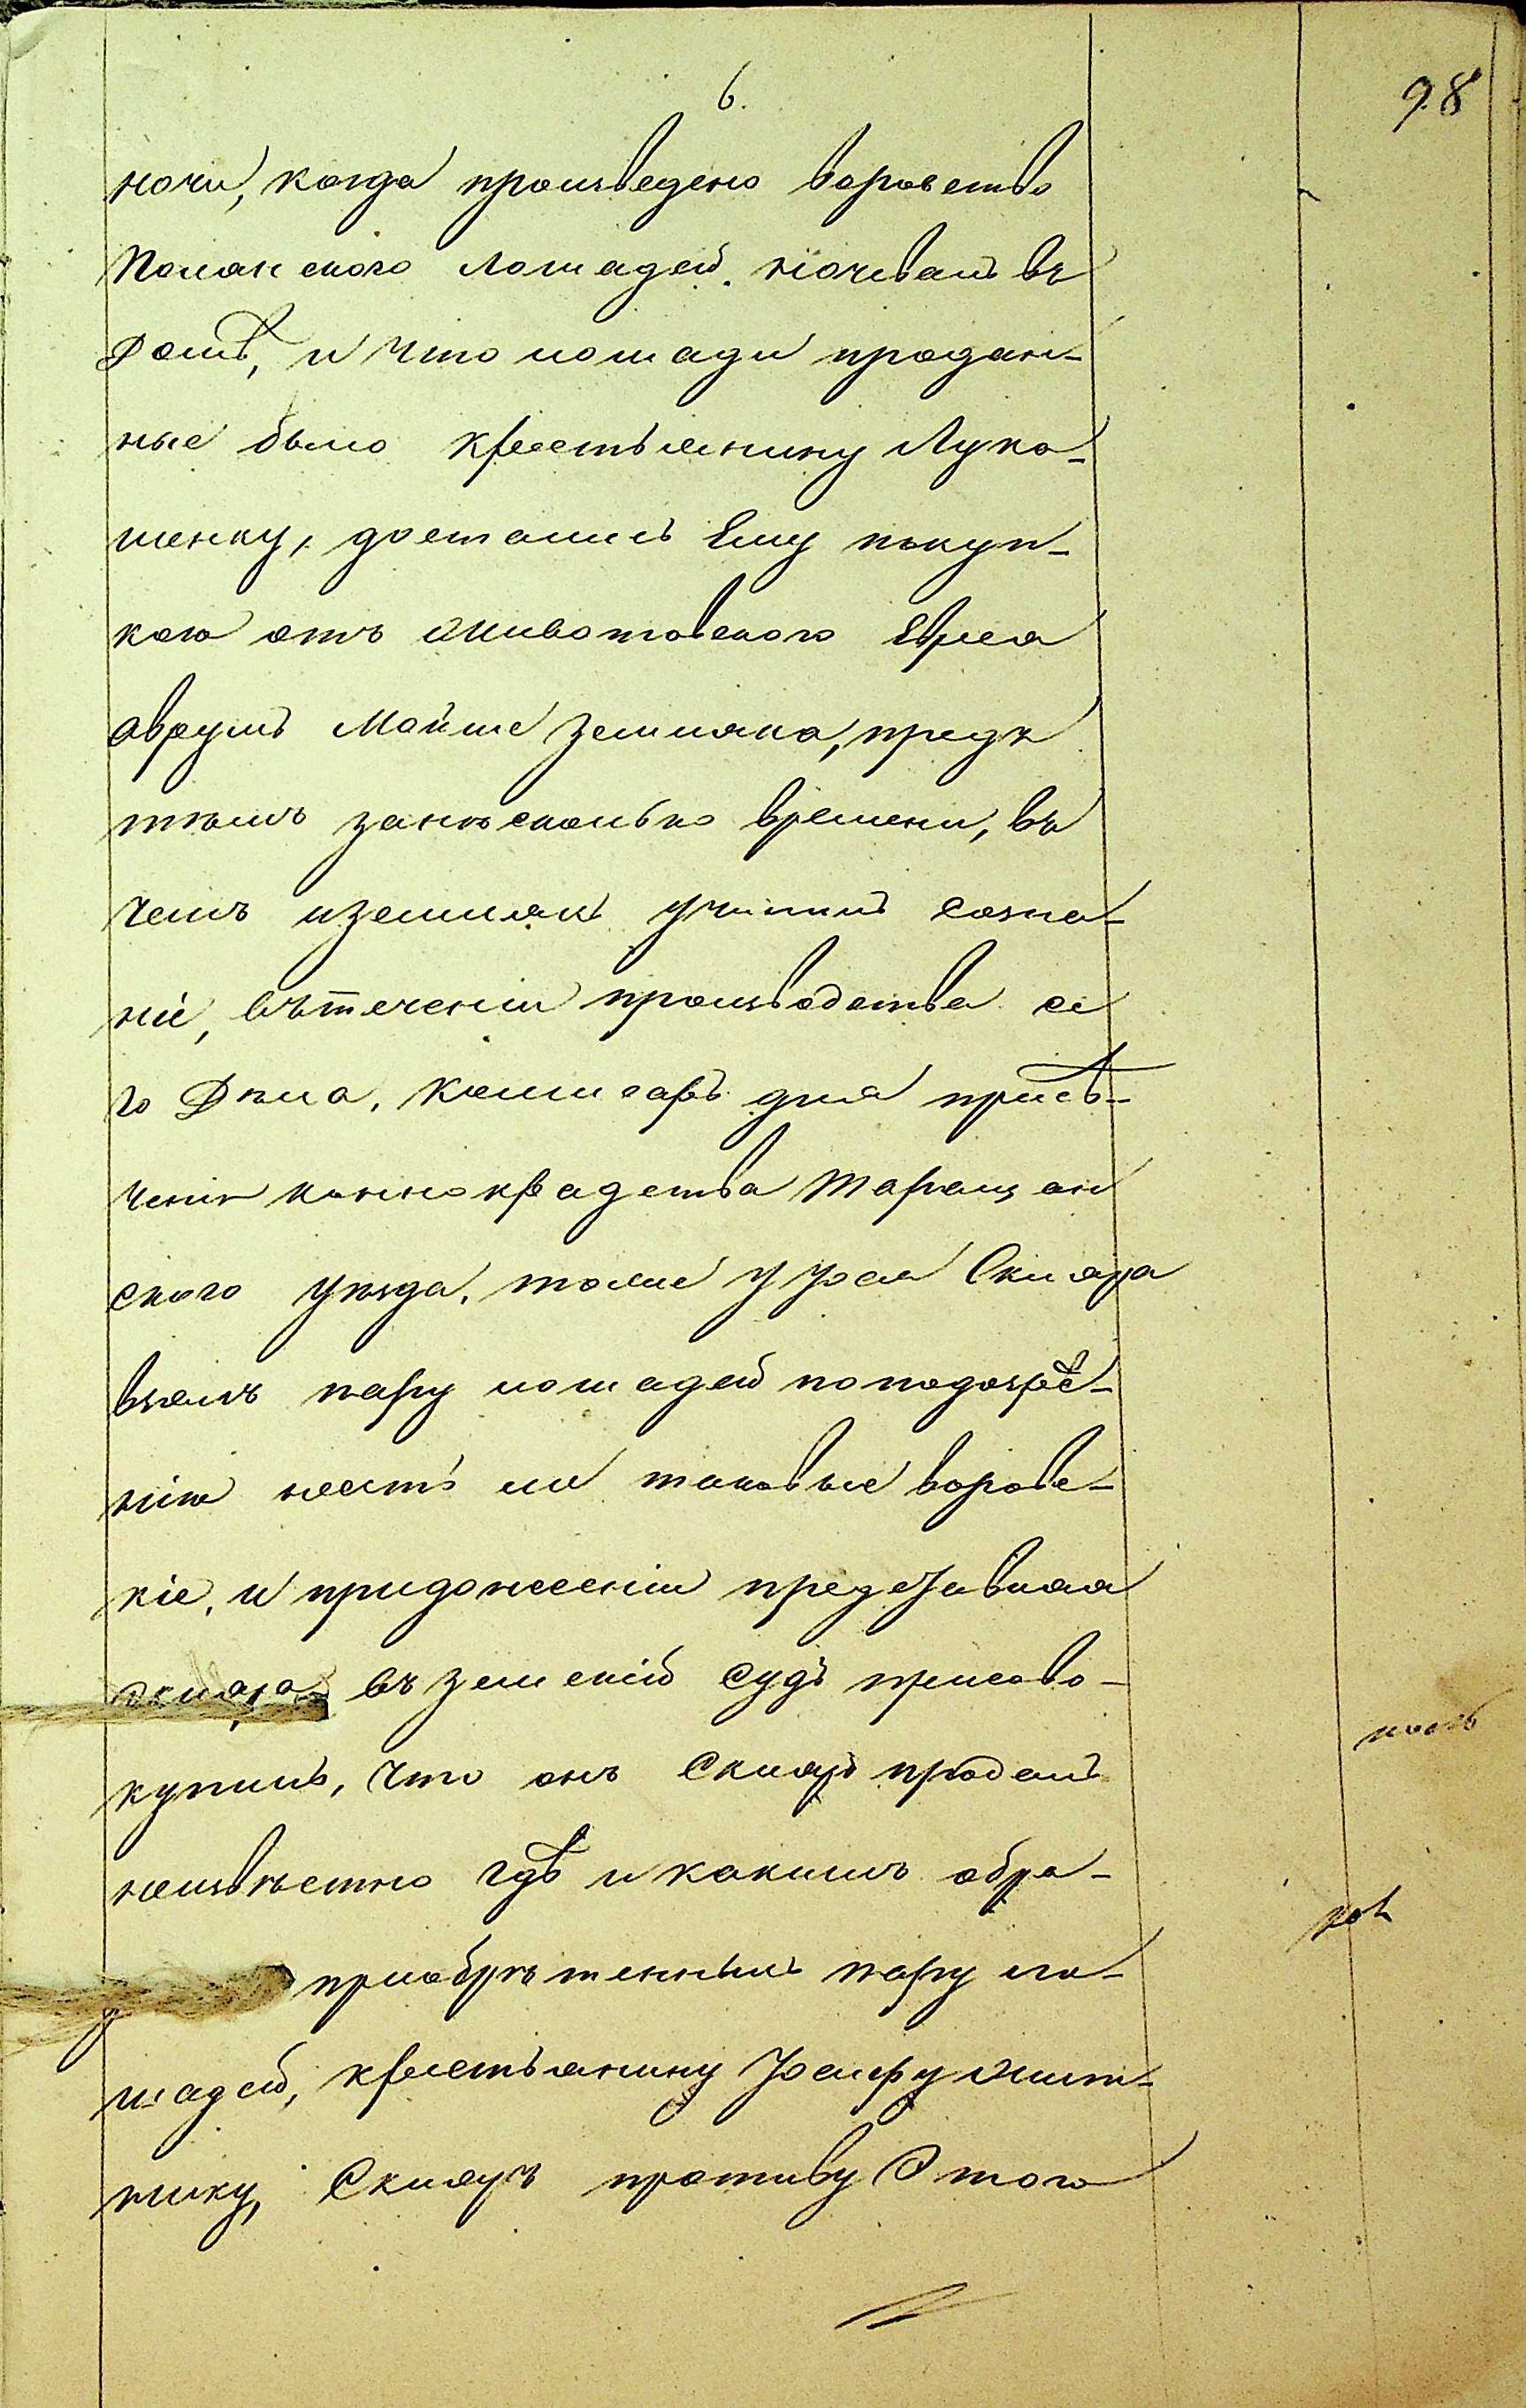 6.
98
ночи, когда произведено воровство
Полянского лошадей. ночевалъ въ
Домѣ, и что лошади продан-
ные было крестьянину Луко-
шенку, достались Ему покуп-
кою отъ Животовского Еврея
Аврумъ Мойше Земляка, предъ
тѣмъ занѣсколько времени, въ
чемъ иземлякъ учинилъ созна-
ніе, вътеченіи производства се
го Дѣла. комисаръ для присѣ-
ченія конокрадства Таращан
ского уѣзда. тоже у Іося Скляра
взялъ пару лошадей поподозрѣ-
нію нестъ ли таковые воровс-
кіе, и придонесеніи представляя
Скляра въ земскій судъ присово-
купилъ, что онъ Скляръ продалъ
неизвѣстно гдѣ и какимъ обра-
пріобрѣтенныхъ пару ло-
шадей, крестьянину Іосифу Жит-
нику, Скляръ противу Этого